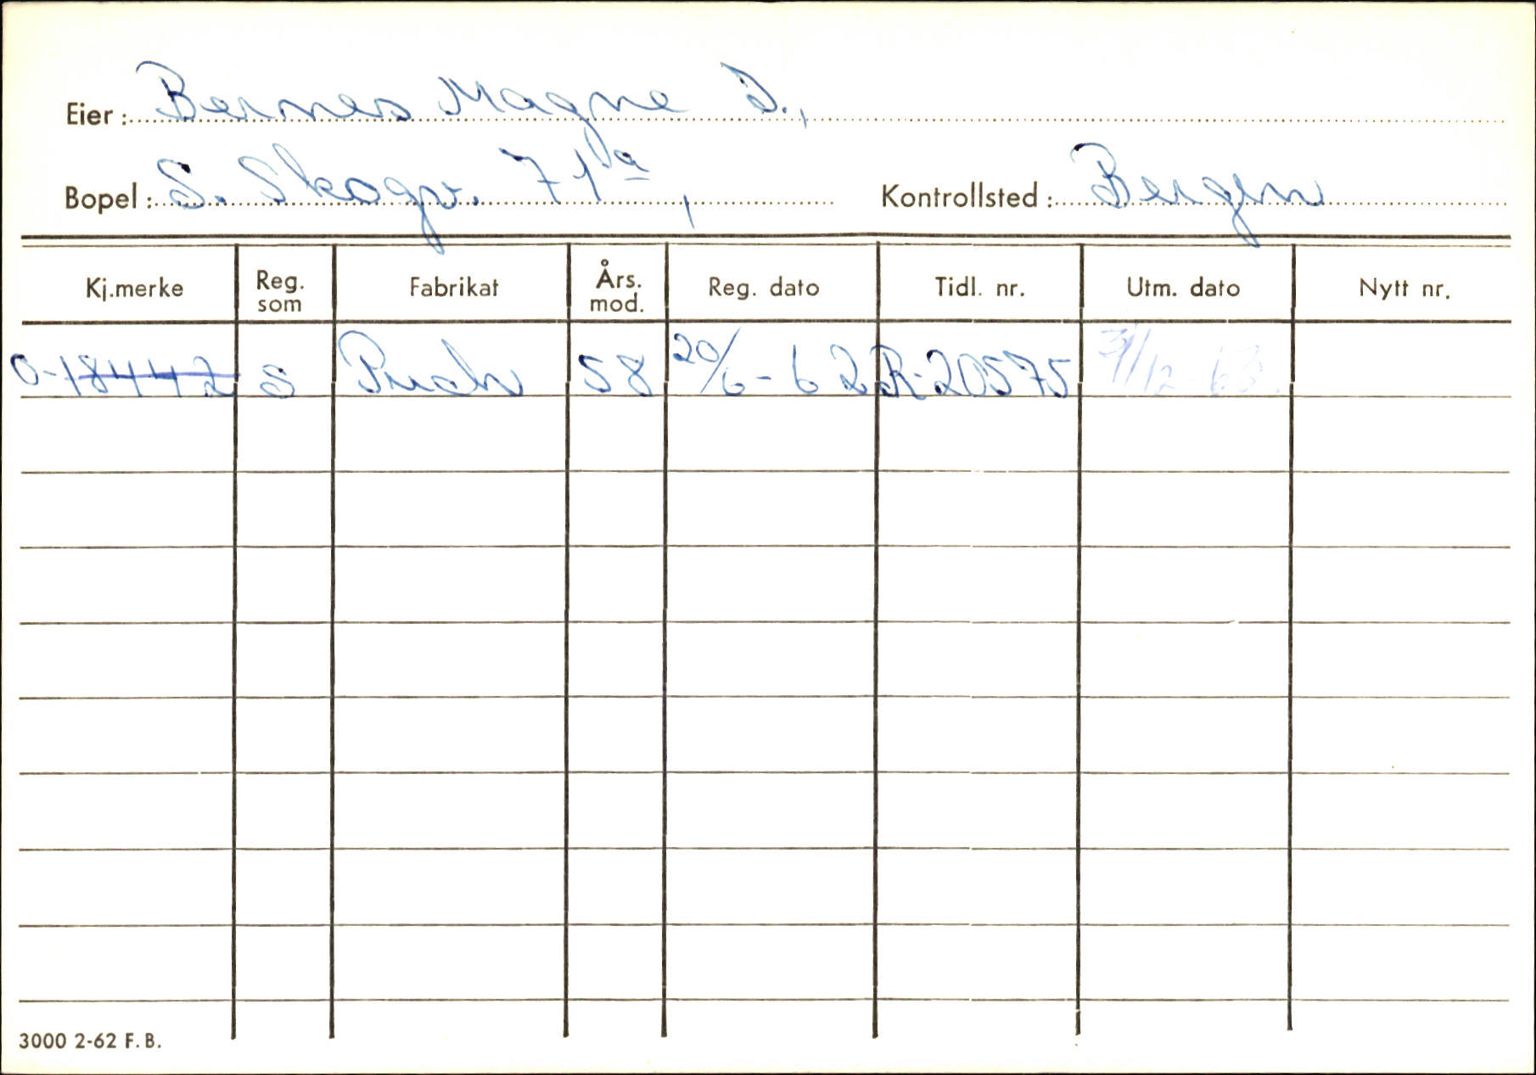 Eier: Bernes Magne D.,
Bopel: S. Skogv. 71a, Kontrollsted: Bergen
Kj.merke Reg. som Fabrikat Års. mod. Reg. dato Tidl. nr. Utm. dato Nytt nr.
O-18442 S Puch 58 20/6-62 R-20575 31/12-63.
3000 2-62 F.B.